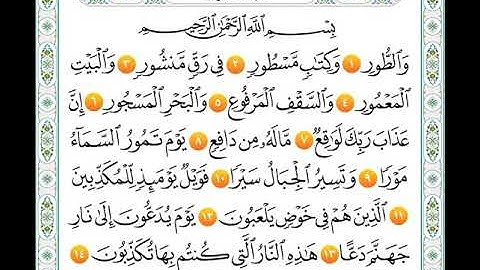 بِسْمِ اللَّهِ الرَّحْمَٰنِ الرَّحِيمِ
وَالطُّورِ ١ وَكِتَابٍ مَّسْطُورٍ ٢ فِي رَقٍّ مَّنشُورٍ ٣ وَالْبَيْتِ
الْمَعْمُورِ ٤ وَالسَّقْفِ الْمَرْفُوعِ ٥ وَالْبَحْرِ الْمَسْجُورِ ٦ إِنَّ
عَذَابَ رَبِّكَ لَوَاقِعٌ ٧ مَّا لَهُ مِن دَافِعٍ ٨ يَوْمَ تَمُورُ السَّمَاءُ
مَوْرًا ٩ وَتَسِيرُ الْجِبَالُ سَيْرًا ١٠ فَوَيْلٌ يَوْمَئِذٍ لِّلْمُكَذِّبِينَ
١١ الَّذِينَ هُمْ فِي خَوْضٍ يَلْعَبُونَ ١٢ يَوْمَ يُدَعُّونَ إِلَىٰ نَارِ
جَهَنَّمَ دَعًّا ١٣ هَٰذِهِ النَّارُ الَّتِي كُنتُم بِهَا تُكَذِّبُونَ ١٤